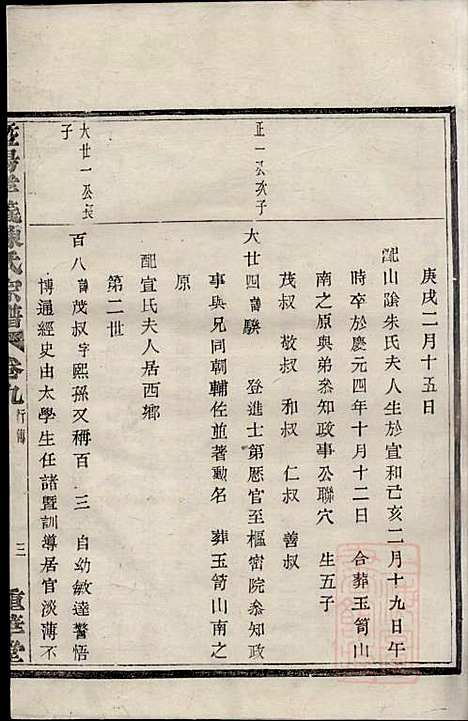 庚戌二月十五日
配山陰朱氏夫人生於宣和己亥二月十九日午
時卒於慶元四年十月十二日　合葬玉笥山
南之原與弟叅知政事公聯穴　生五子
茂叔　敬叔　和叔　仁叔　善叔
正一公次子
大廿四諱騤　登進士第厯官至樞密院叅知政
事與兄同朝輔佐並著勳名　葬玉笥山南之
原
配宜氏夫人居西鄉
第二世
大廿一公長子
百八諱茂叔字熙孫又稱百三　自幼敏達警悟
博通經史由太學生任諸暨訓導居官淡薄不
陳氏宗譜　卷九　行傳　三　重華堂